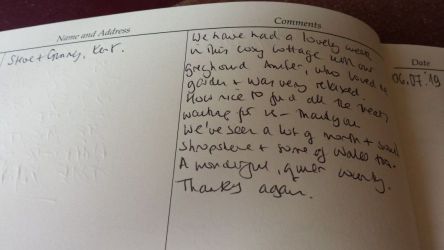 Name and Address
Comments
Date
Steve + Ginny, Kent.
06.07.19
We have had a lovely week
in this cosy cottage with our
greyhound Amber, who loved the
garden + was very relaxed
How nice to find all the treats
waiting for us - thank you
We've seen a lot of north + south
Shropshire + some of Wales too.
A wonderful, quiet country.
Thanks again.